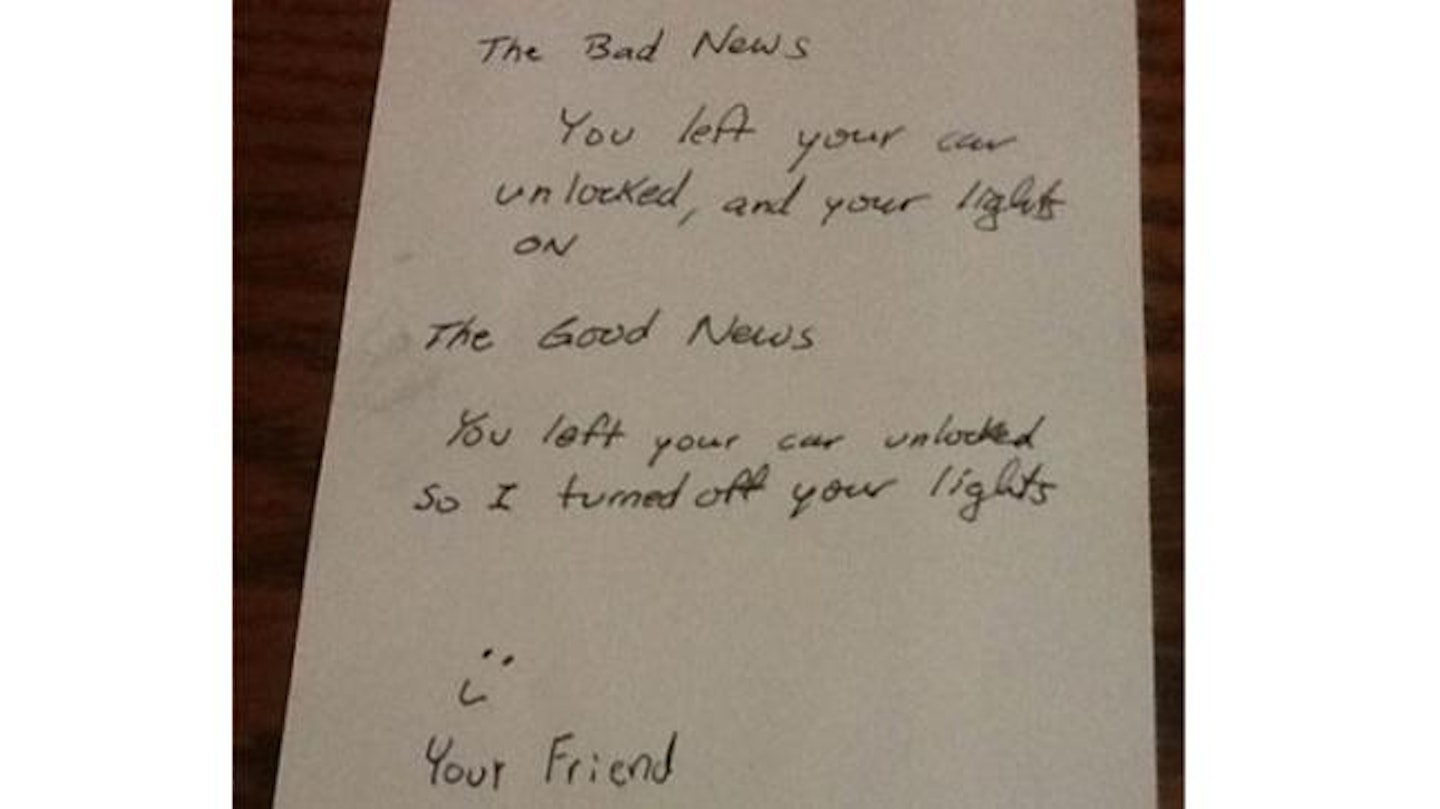 The Bad News
You left your car
unlocked, and your lights
ON
The Good News
You left your car unlocked
So I turned off your lights
Your Friend